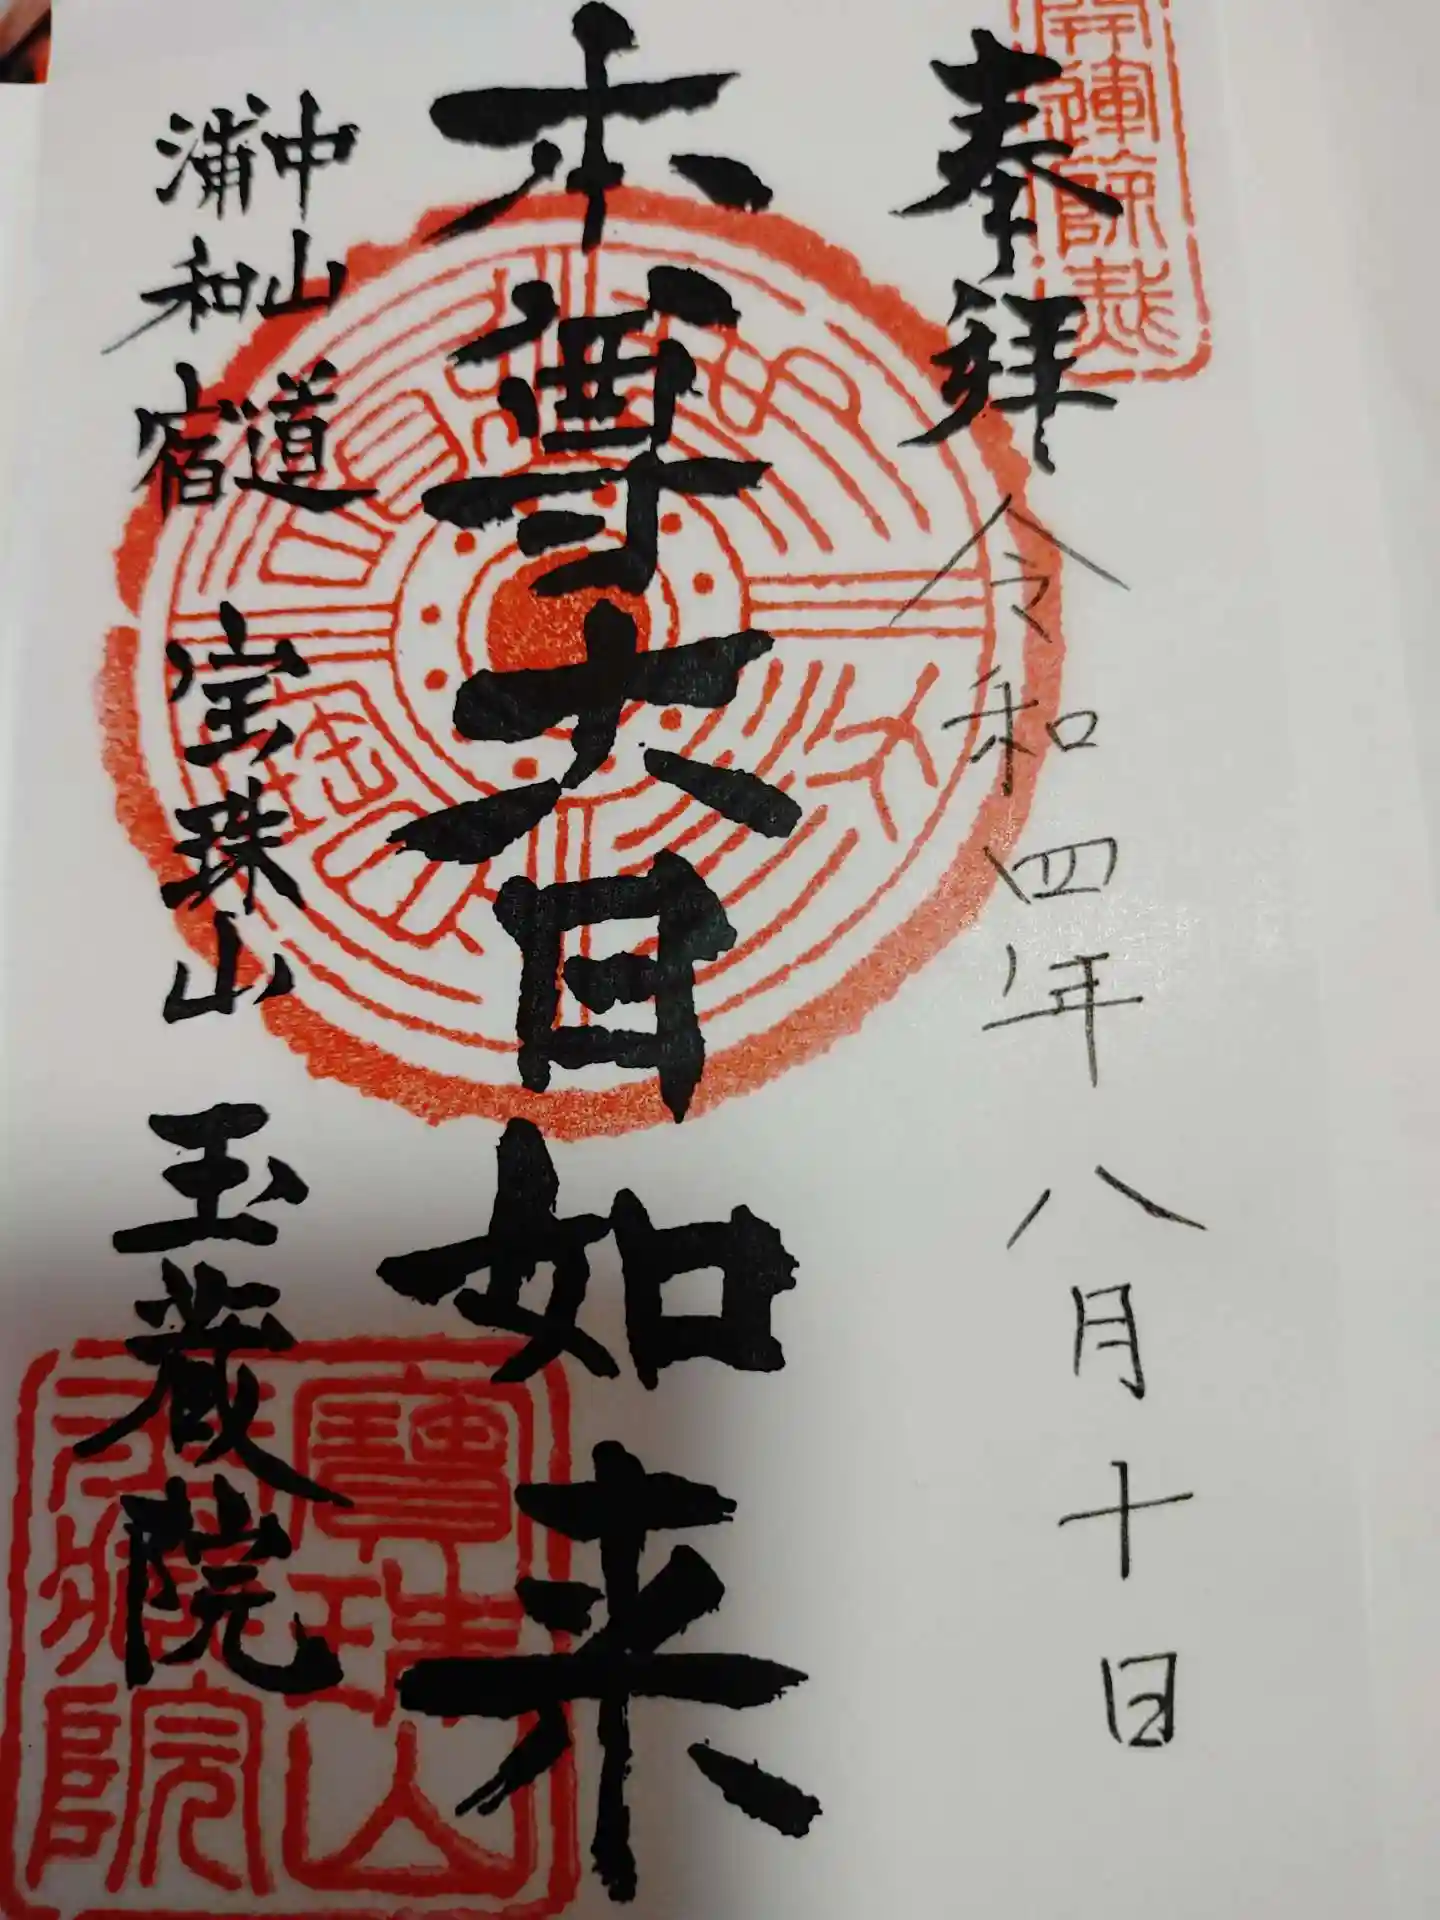 奉拝
令和四年八月十日
本尊大日如来
中山道
浦和宿
宝珠山
玉蔵院
寶珠山
玉蔵院